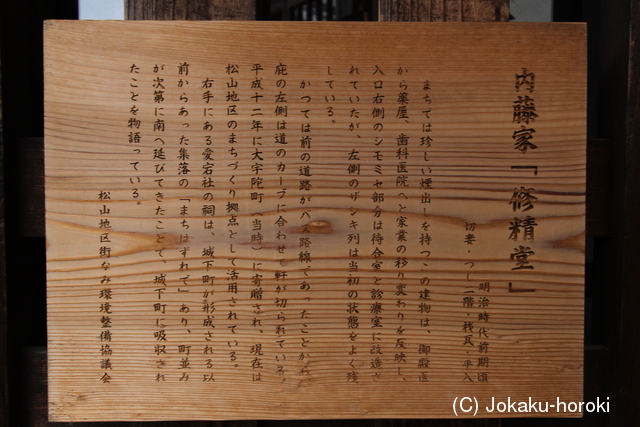 内藤家「修精堂」
明治時代前期頃
切妻・つし二階・桟瓦・平入
まちでは珍しい煙出しを持つこの建物は、御殿医
から薬屋、歯科医院へと家業の移り変わりを反映し、
入口右側のシモミセ部分は待合室と診療室に改造さ
れていたが、左側のザシキ列は当初の状態をよく残
している。
かつては前の道路がバス路線であったことから、
庇の左側は道のカーブに合わせて軒が切られている。
平成十二年に大宇陀町(当時)に寄贈され、現在は
松山地区のまちづくり拠点として活用されている。
右手にある愛宕社の祠は、城下町が形成される以
前からあった集落の「まちはずれで」あり、町並み
が次第に南へ延びてきたことで、城下町に吸収され
たことを物語っている。
松山地区街なみ環境整備協議会
(C) Jokaku-horoki